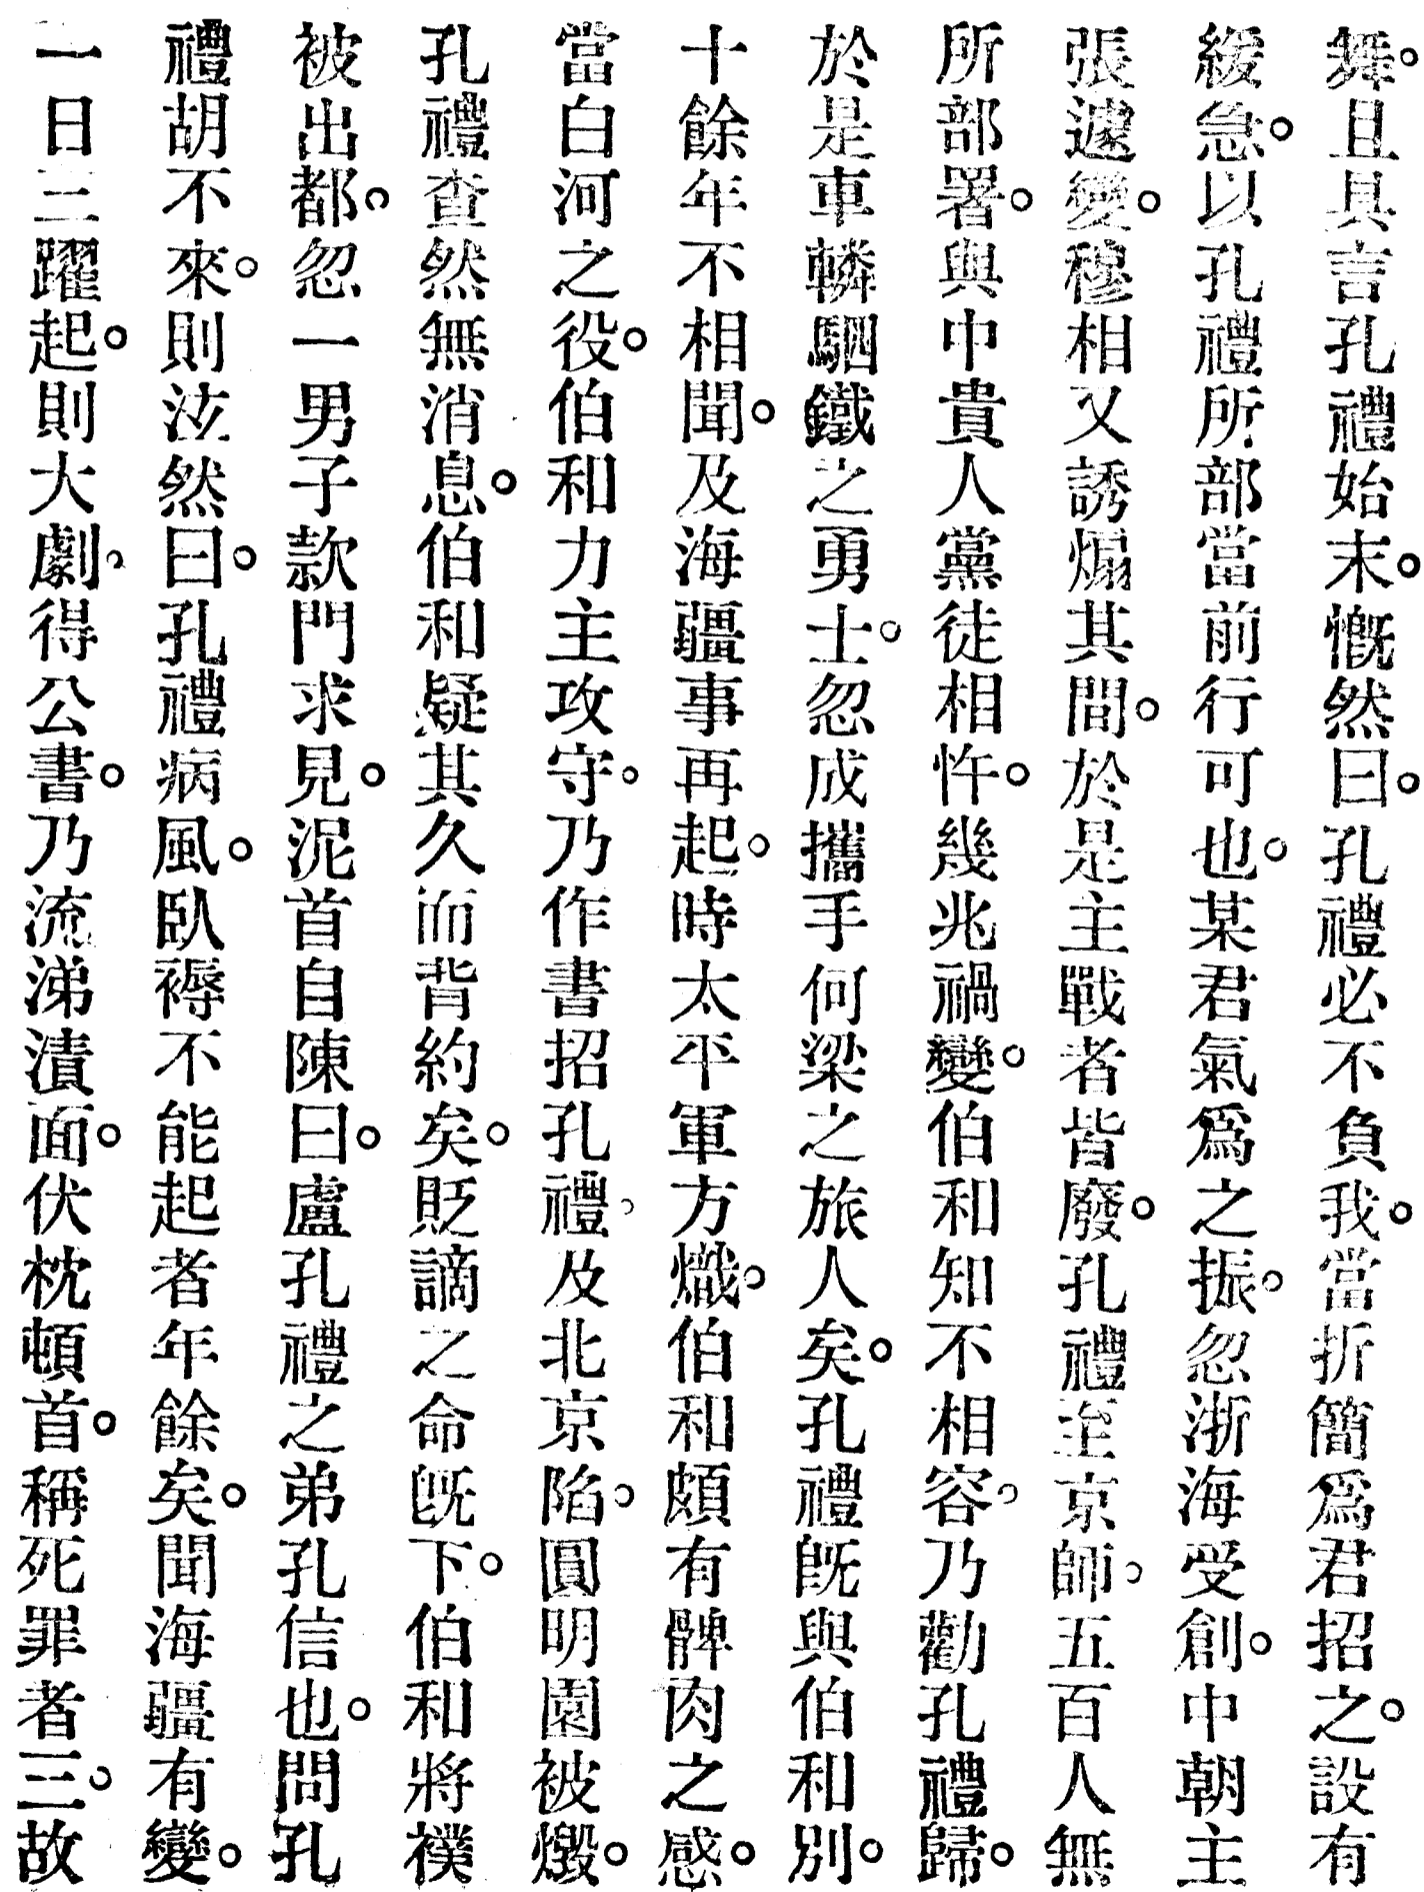 舞。且具言孔禮始末。慨然曰。孔禮必不負我。當折簡爲君招之。設有
緩急。以孔禮所部當前行可也。某君氣爲之振。忽浙海受創。中朝主
張遽變。穆相又誘煽其間。於是主戰者皆廢。孔禮至京師。五百人無
所部署。與中貴人黨徒相忤。幾兆禍變。伯和知不相容。乃勸孔禮歸。
於是車轔駟鐵之勇士。忽成攜手何梁之旅人矣。孔禮旣與伯和別。
十餘年不相聞。及海疆事再起。時太平軍方熾。伯和頗有髀肉之感。
當白河之役。伯和力主攻守。乃作書招孔禮。及北京陷。圓明園被燬。
孔禮查然無消息。伯和疑其久而背約矣。貶謫之命旣下。伯和將襆
被出都。忽一男子款門求見。泥首自陳曰。盧孔禮之弟孔信也。問孔
禮胡不來。則泫然曰。孔禮病風。臥褥不能起者年餘矣。聞海疆有變。
一日三躍起。則大劇。得公書。乃流涕漬面。伏枕頓首。稱死罪者三。故